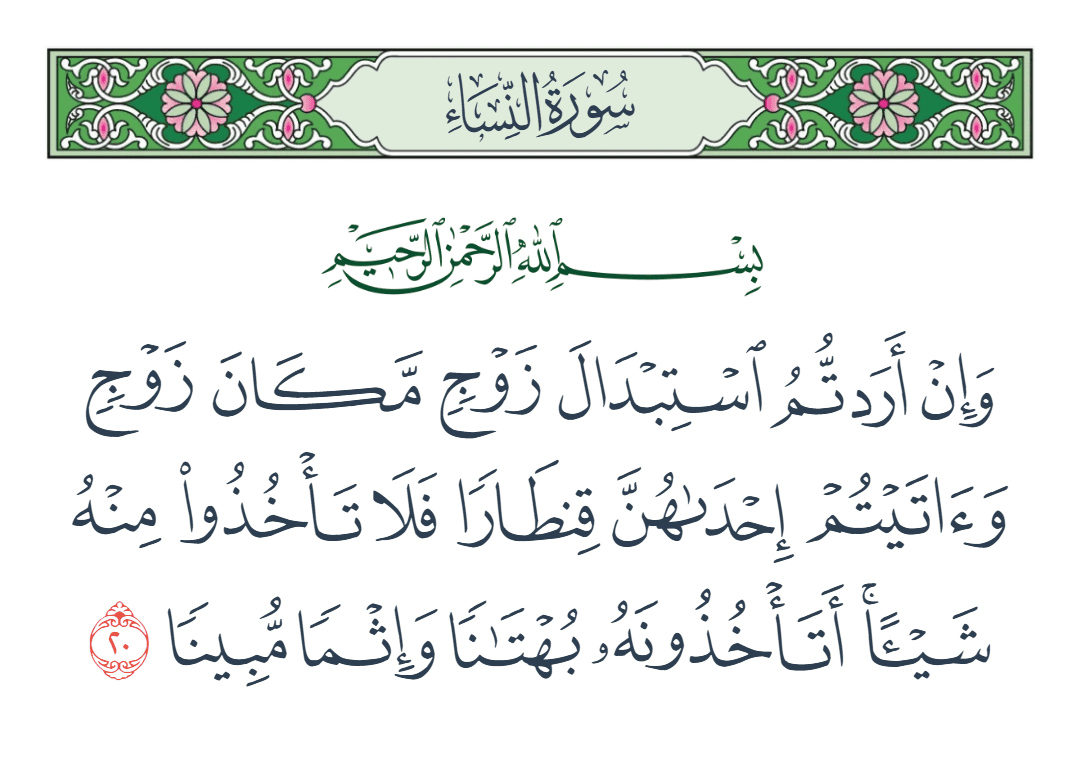 سُورَةُ النِّسَاءِ
بِسْمِ ٱللَّهِ ٱلرَّحْمَٰنِ ٱلرَّحِيمِ
وَإِنۡ أَرَدتُّمُ ٱسۡتِبۡدَالَ زَوۡجٖ مَّكَانَ زَوۡجٖ
وَءَاتَيۡتُمۡ إِحۡدَىٰهُنَّ قِنطَارٗا فَلَا تَأۡخُذُواْ مِنۡهُ
شَيۡـًٔاۚ أَتَأۡخُذُونَهُۥ بُهۡتَٰنٗا وَإِثۡمٗا مُّبِينٗا ٢٠